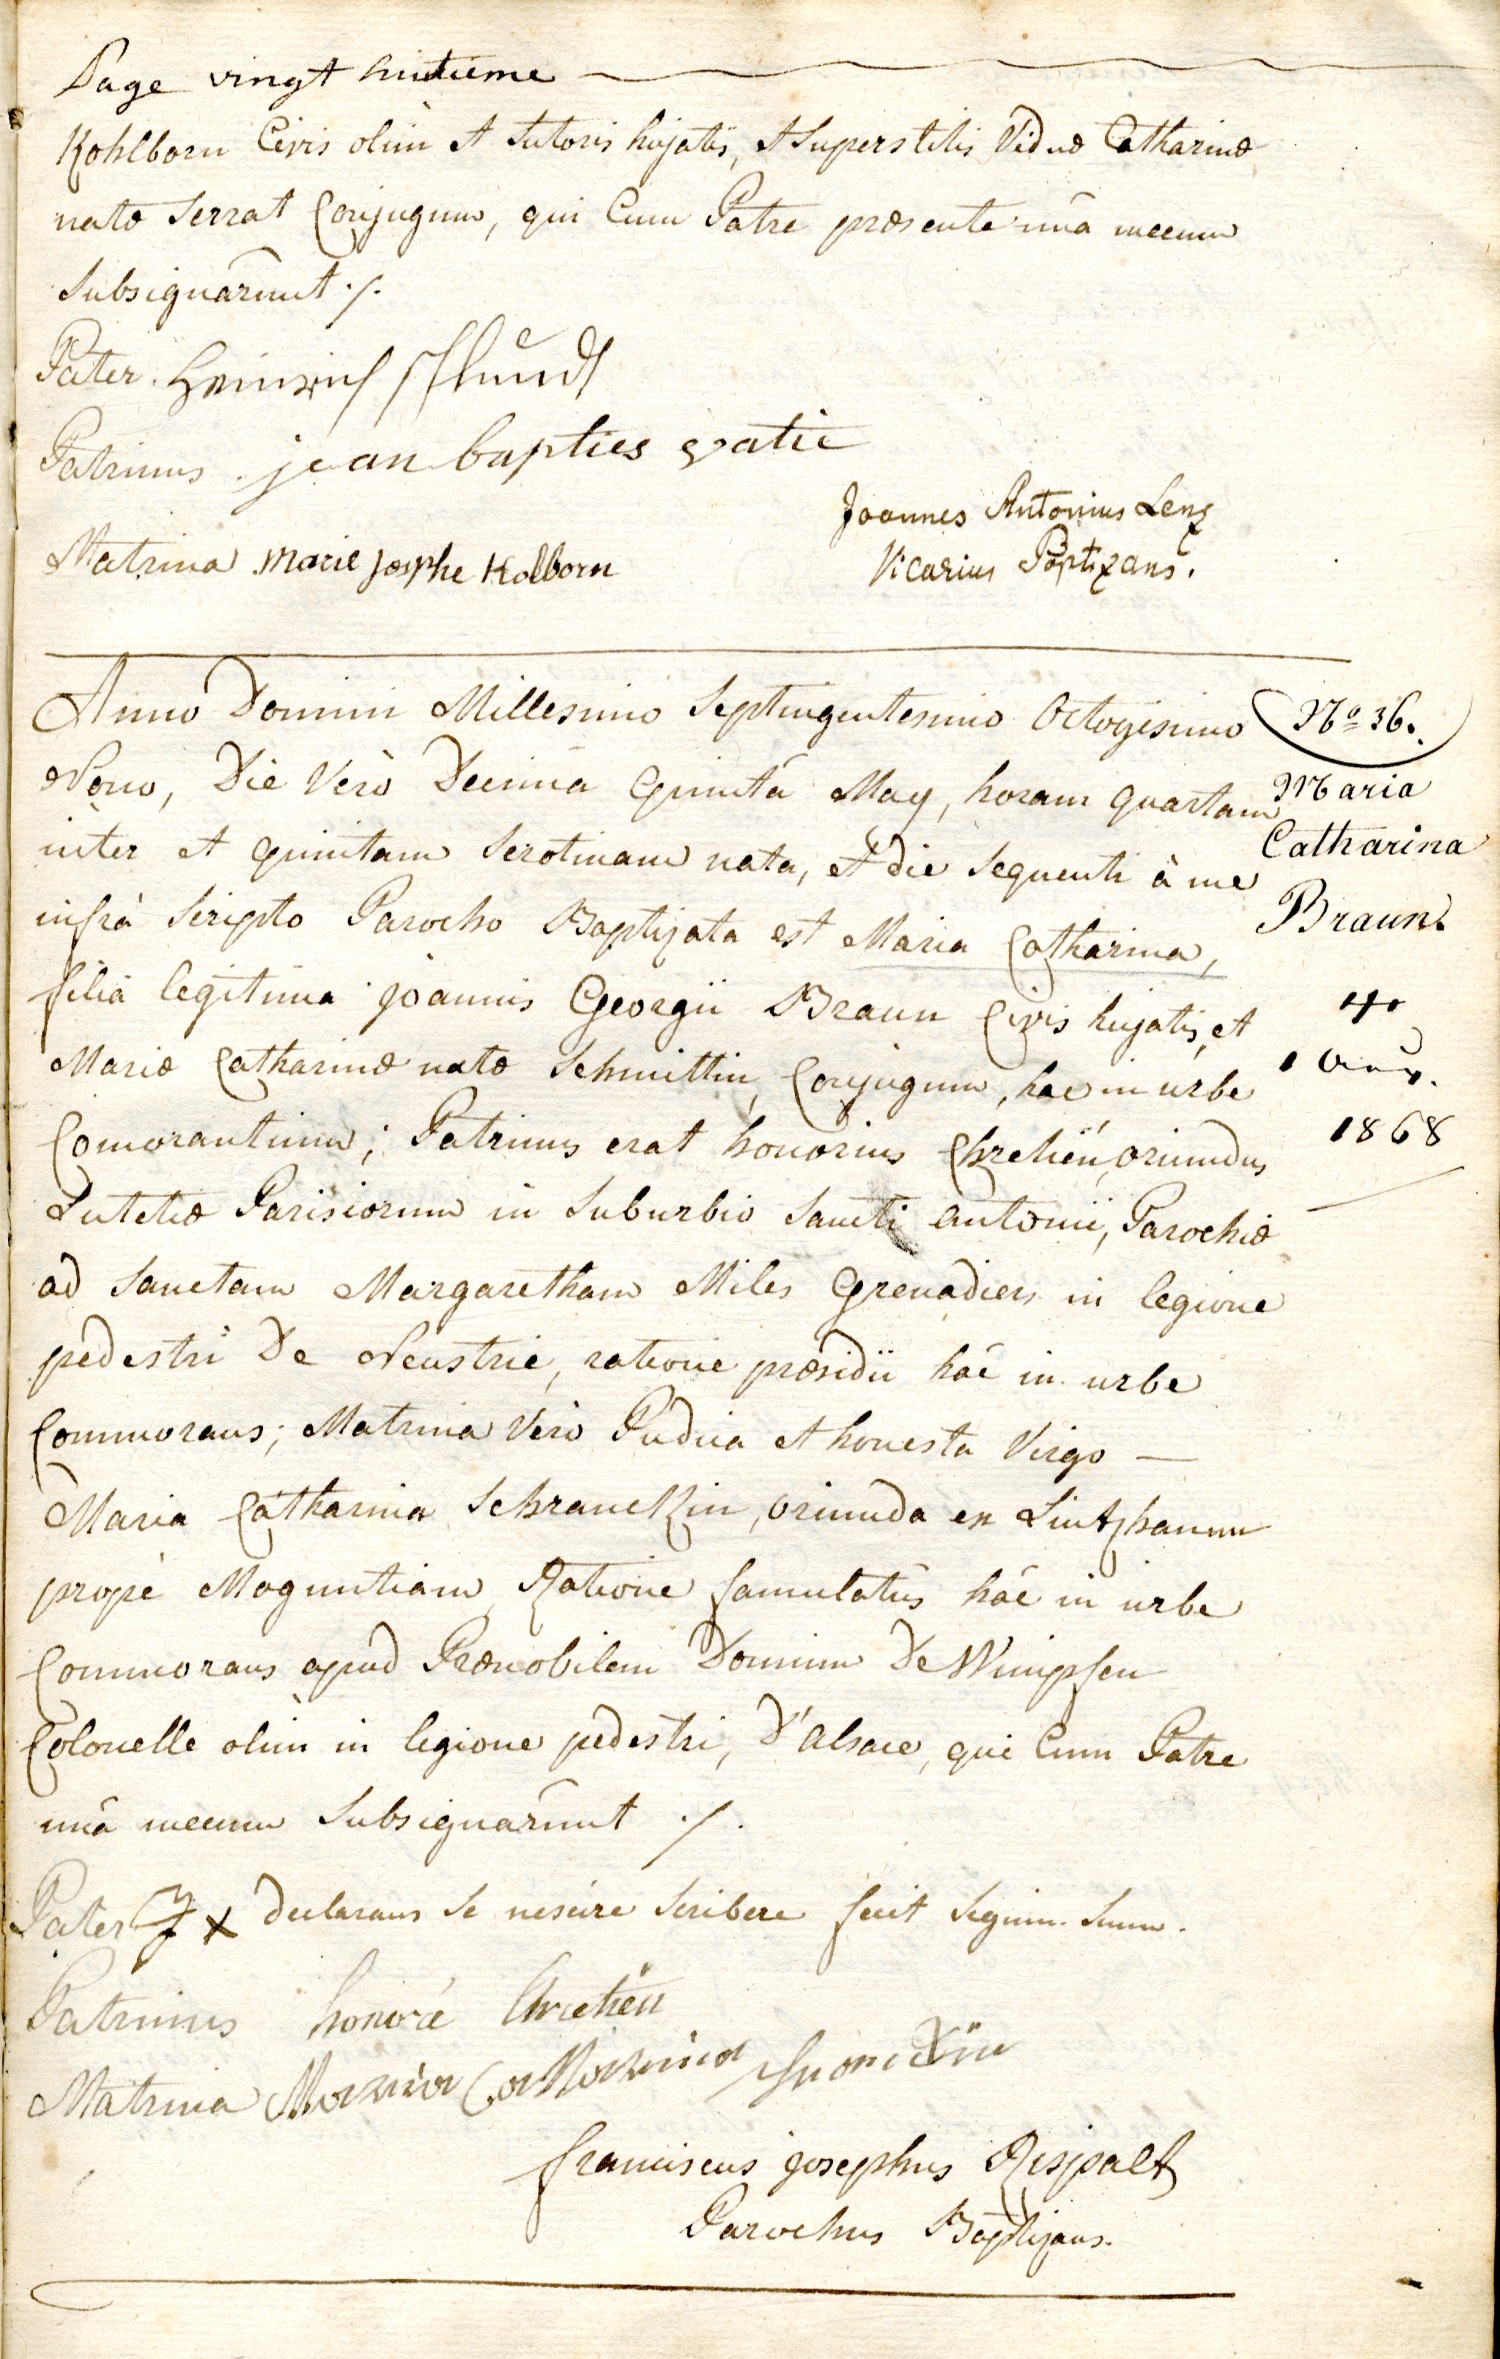 Page vingt huitieme
Kohlborn Civis olim et Sutoris hujatis, et Superstitis Viduæ Catharinæ
natæ Serrat Conjugum, qui Cum Patre præsente unâ mecum
Subsignârunt ./.
Pater. Heinrich
Patrinus. jean bapties
Matrina Marie Josephe Kolborn
Joannes Antonius Lenz
Vicarius Baptizans.
Anno Domini Millesimo Septingentesimo Octogesimo
Nono, Die Verò Decima Quinta May, horam quartam
inter et quintam Serotinam nata, et die Sequenti à me
infrà Scripto Parocho Baptizata est Maria Catharina,
filia legitima joannis Georgii Braun Civis hujatis, et
Mariæ Catharinæ natæ Schmittin, Conjugum, hac in urbe
Comorantium; Patrinus erat honorius Chretien, oriundus
Lutetiæ Parisiorum in Suburbio Sancti antonii, Parochiæ
ad Sanctam Margaretham Miles Grenadier in legione
pedestri De Neustrie, ratione præsidii hâc in urbe
Commorans; Matrina Verò Pudica et honesta Virgo —
Maria Catharina Schranckin, oriunda ex
propè Moguntiam, Ratione famulatûs hâc in urbe
Commorans apud Prænobilem Dominum De Wimpfen
Colonelle olim in legione pedestri, D'alsace, qui Cum Patre
unâ mecum Subsignârunt ./.
Pater X declarans Se nescire Scribere fecit Signum Suum.
Patrinus honoré Chretien
Matrina Maria Catharina
franciscus josephus Rispalt
Parochus Baptizans.
Nº 36.
Maria
Catharina
Braun.
1868